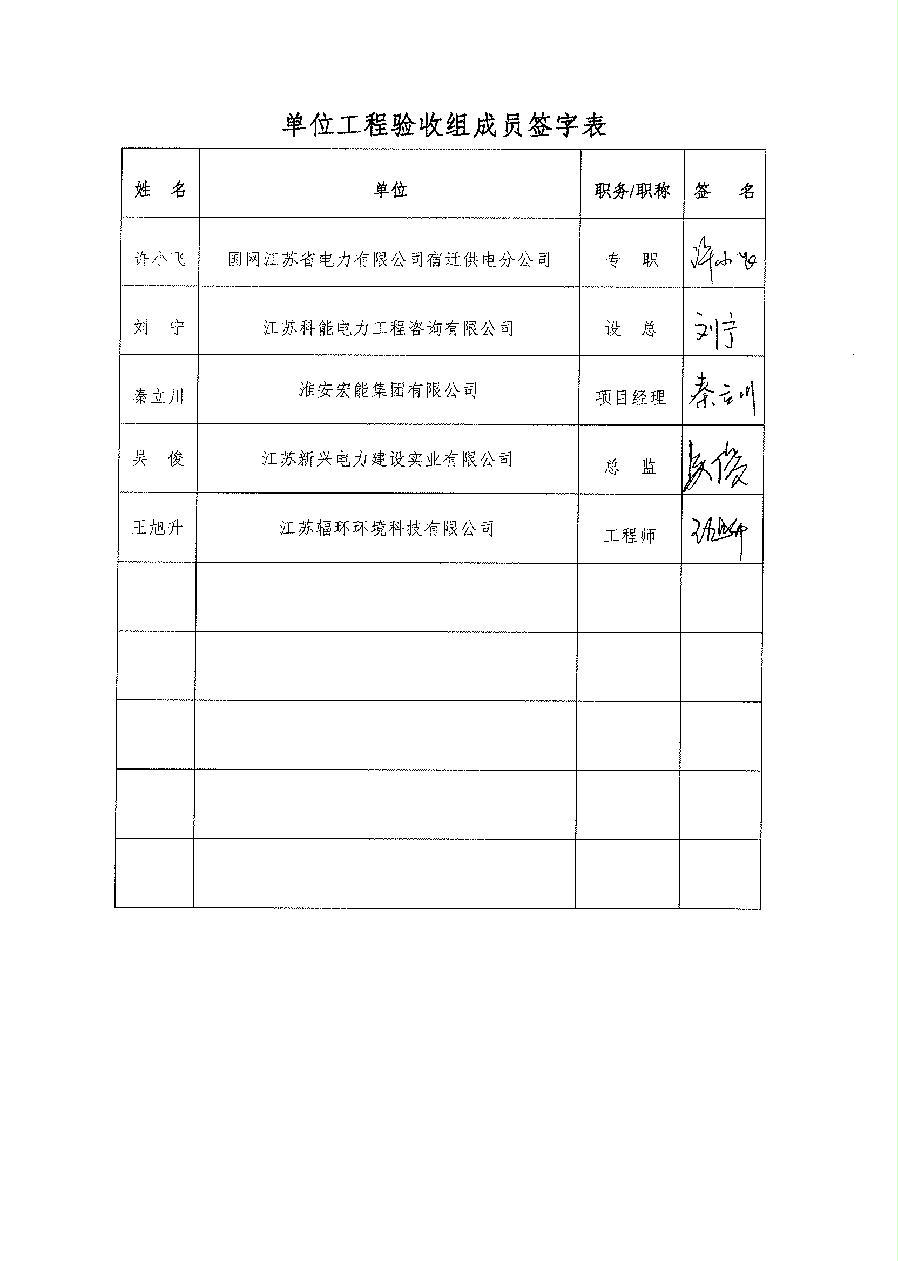 单位工程验收组成员签字表
姓 名 单位 职务/职称 签 名
许小飞 国网江苏省电力有限公司宿迁供电分公司 专 职 许小飞
刘 宁 江苏科能电力工程咨询有限公司 设 总 刘宁
秦立川 淮安宏能集团有限公司 项目经理 秦立川
吴 俊 江苏新兴电力建设实业有限公司 总 监 吴俊
王旭升 江苏辐环环境科技有限公司 工程师 王旭升